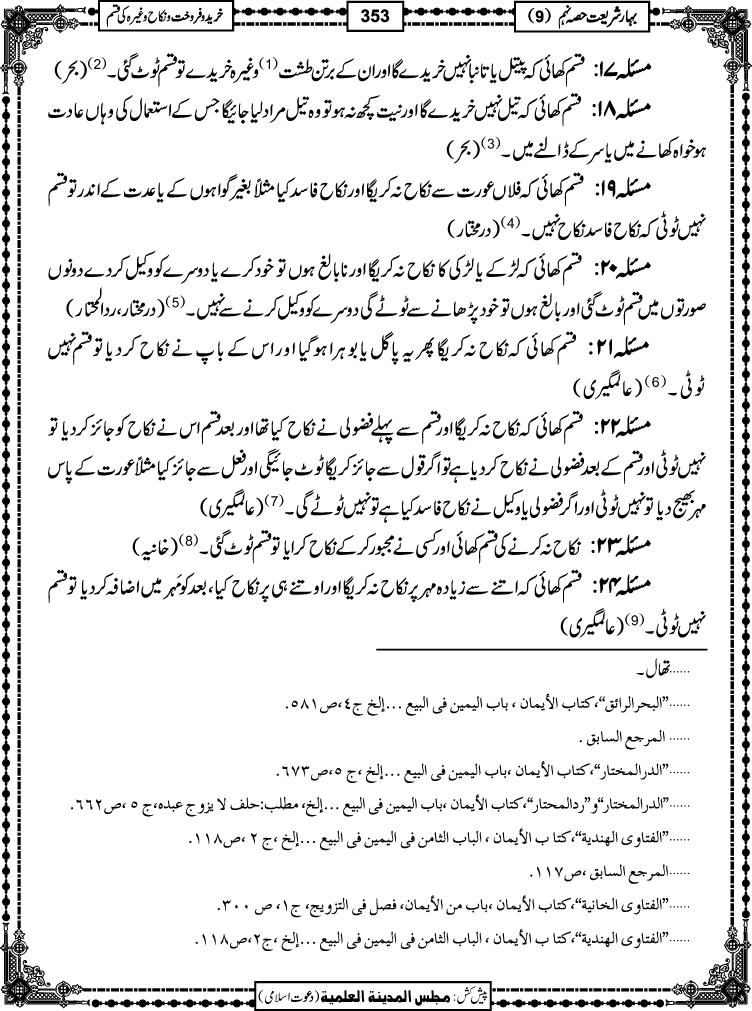 بہار شریعت حصہ نہم (9)
353
خرید و فروخت و نکاح وغیرہ کی قسم
مسئلہ ۱۷: قسم کھائی کہ پیتل یا تانبا نہیں خریدے گا اور ان کے برتن طشت (1) وغیرہ خریدے تو قسم ٹوٹ گئی۔ (2) (بحر)
مسئلہ ۱۸: قسم کھائی کہ تیل نہیں خریدے گا اور نیت کچھ نہ ہو تو وہ تیل مراد لیا جائیگا جس کے استعمال کی وہاں عادت
ہو خواہ کھانے میں یا سر کے ڈالنے میں۔ (3) (بحر)
مسئلہ ۱۹: قسم کھائی کہ فلاں عورت سے نکاح نہ کریگا اور نکاح فاسد کیا مثلاً بغیر گواہوں کے یا عدت کے اندر تو قسم
نہیں ٹوٹی کہ نکاح فاسد نکاح نہیں۔ (4) (درمختار)
مسئلہ ۲۰: قسم کھائی کہ لڑکے یا لڑکی کا نکاح نہ کریگا اور نابالغ ہوں تو خود کرے یا دوسرے کو وکیل کر دے دونوں
صورتوں میں قسم ٹوٹ گئی اور بالغ ہوں تو خود پڑھانے سے ٹوٹے گی دوسرے کو وکیل کرنے سے نہیں۔ (5) (درمختار، ردالمحتار)
مسئلہ ۲۱: قسم کھائی کہ نکاح نہ کریگا پھر یہ پاگل یا بوہرا ہو گیا اور اس کے باپ نے نکاح کر دیا تو قسم نہیں
ٹوٹی۔ (6) (عالمگیری)
مسئلہ ۲۲: قسم کھائی کہ نکاح نہ کریگا اور قسم سے پہلے فضولی نے نکاح کیا تھا اور بعد قسم اس نے نکاح کو جائز کر دیا تو
نہیں ٹوٹی اور قسم کے بعد فضولی نے نکاح کر دیا ہے تو اگر قول سے جائز کریگا ٹوٹ جائیگی اور فعل سے جائز کیا مثلاً عورت کے پاس
مہر بھیج دیا تو نہیں ٹوٹی اور اگر فضولی یا وکیل نے نکاح فاسد کیا ہے تو نہیں ٹوٹے گی۔ (7) (عالمگیری)
مسئلہ ۲۳: نکاح نہ کرنے کی قسم کھائی اور کسی نے مجبور کر کے نکاح کرایا تو قسم ٹوٹ گئی۔ (8) (خانیہ)
مسئلہ ۲۴: قسم کھائی کہ اتنے سے زیادہ مہر پر نکاح نہ کریگا اور اوتنے ہی پر نکاح کیا، بعد کو مَہر میں اضافہ کر دیا تو قسم
نہیں ٹوٹی۔ (9) (عالمگیری)
......تھال۔
......”البحرالرائق“،کتاب الأیمان ، باب الیمین فی البیع ...إلخ ج٤،ص٥٨١.
...... المرجع السابق .
......”الدرالمختار“،کتاب الأیمان ،باب الیمین فی البیع ...إلخ ،ج ٥،ص٦٧٣.
......”الدرالمختار“و”ردالمحتار“،کتاب الأیمان ،باب الیمین فی البیع ...إلخ، مطلب:حلف لا یزوج عبده،ج ٥ ،ص٦٦٢.
......”الفتاوی الهندیة“،کتا ب الأیمان ، الباب الثامن فی الیمین فی البیع ...إلخ ،ج ٢ ،ص١١٨.
......المرجع السابق ،ص١١٧.
......”الفتاوی الخانیة“،کتاب الأیمان ،باب من الأیمان، فصل فی التزویج، ج١، ص ٣٠٠.
......”الفتاوی الهندیة“،کتا ب الأیمان ، الباب الثامن فی الیمین فی البیع ...إلخ ،ج٢،ص١١٨.
پیش کش: مجلس المدینة العلمیة (دعوت اسلامی)